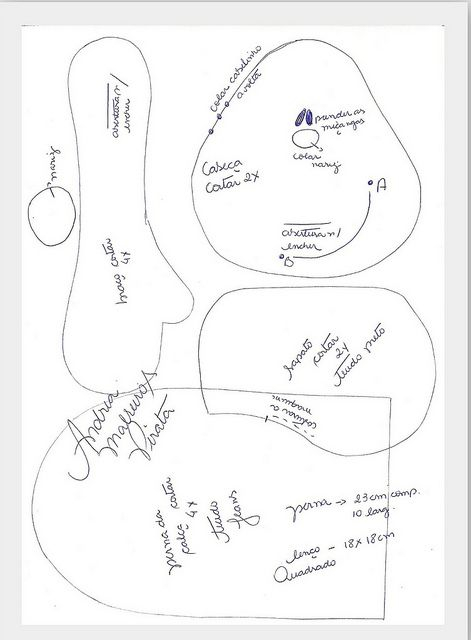 abertura p/
encher
nariz
braço cortar
4x
colar cabelinho
a volta
prender as
miçangas
colar
nariz
Cabeça
Cortar 2x
A
abertura p/
encher
B
sapato
cortar
2x
tecido preto
costurar a
maquina
Andrea
Malheiros
Pirata
perna da
calça cortar
4x
tecido
jeans
perna -> 23cm comp.
10 larg.
lenço - 18x18cm
Quadrado